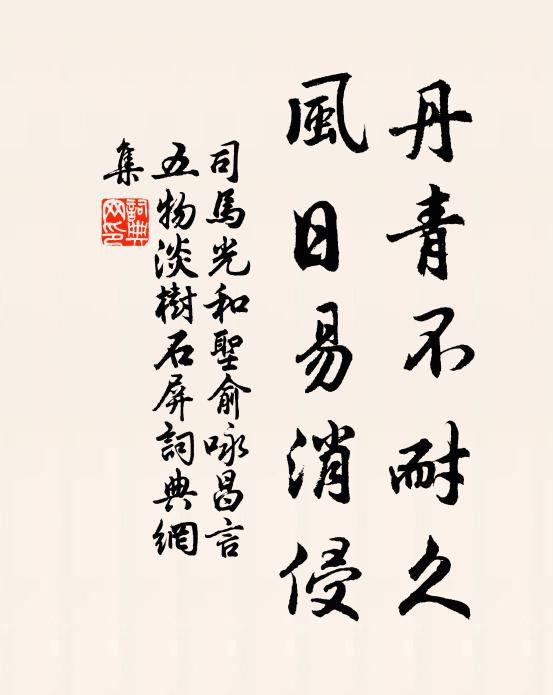 丹青不耐久
風日易消侵
司馬光和聖俞咏昌言
五物淡樹石屏詞典網
集
詞典
网印